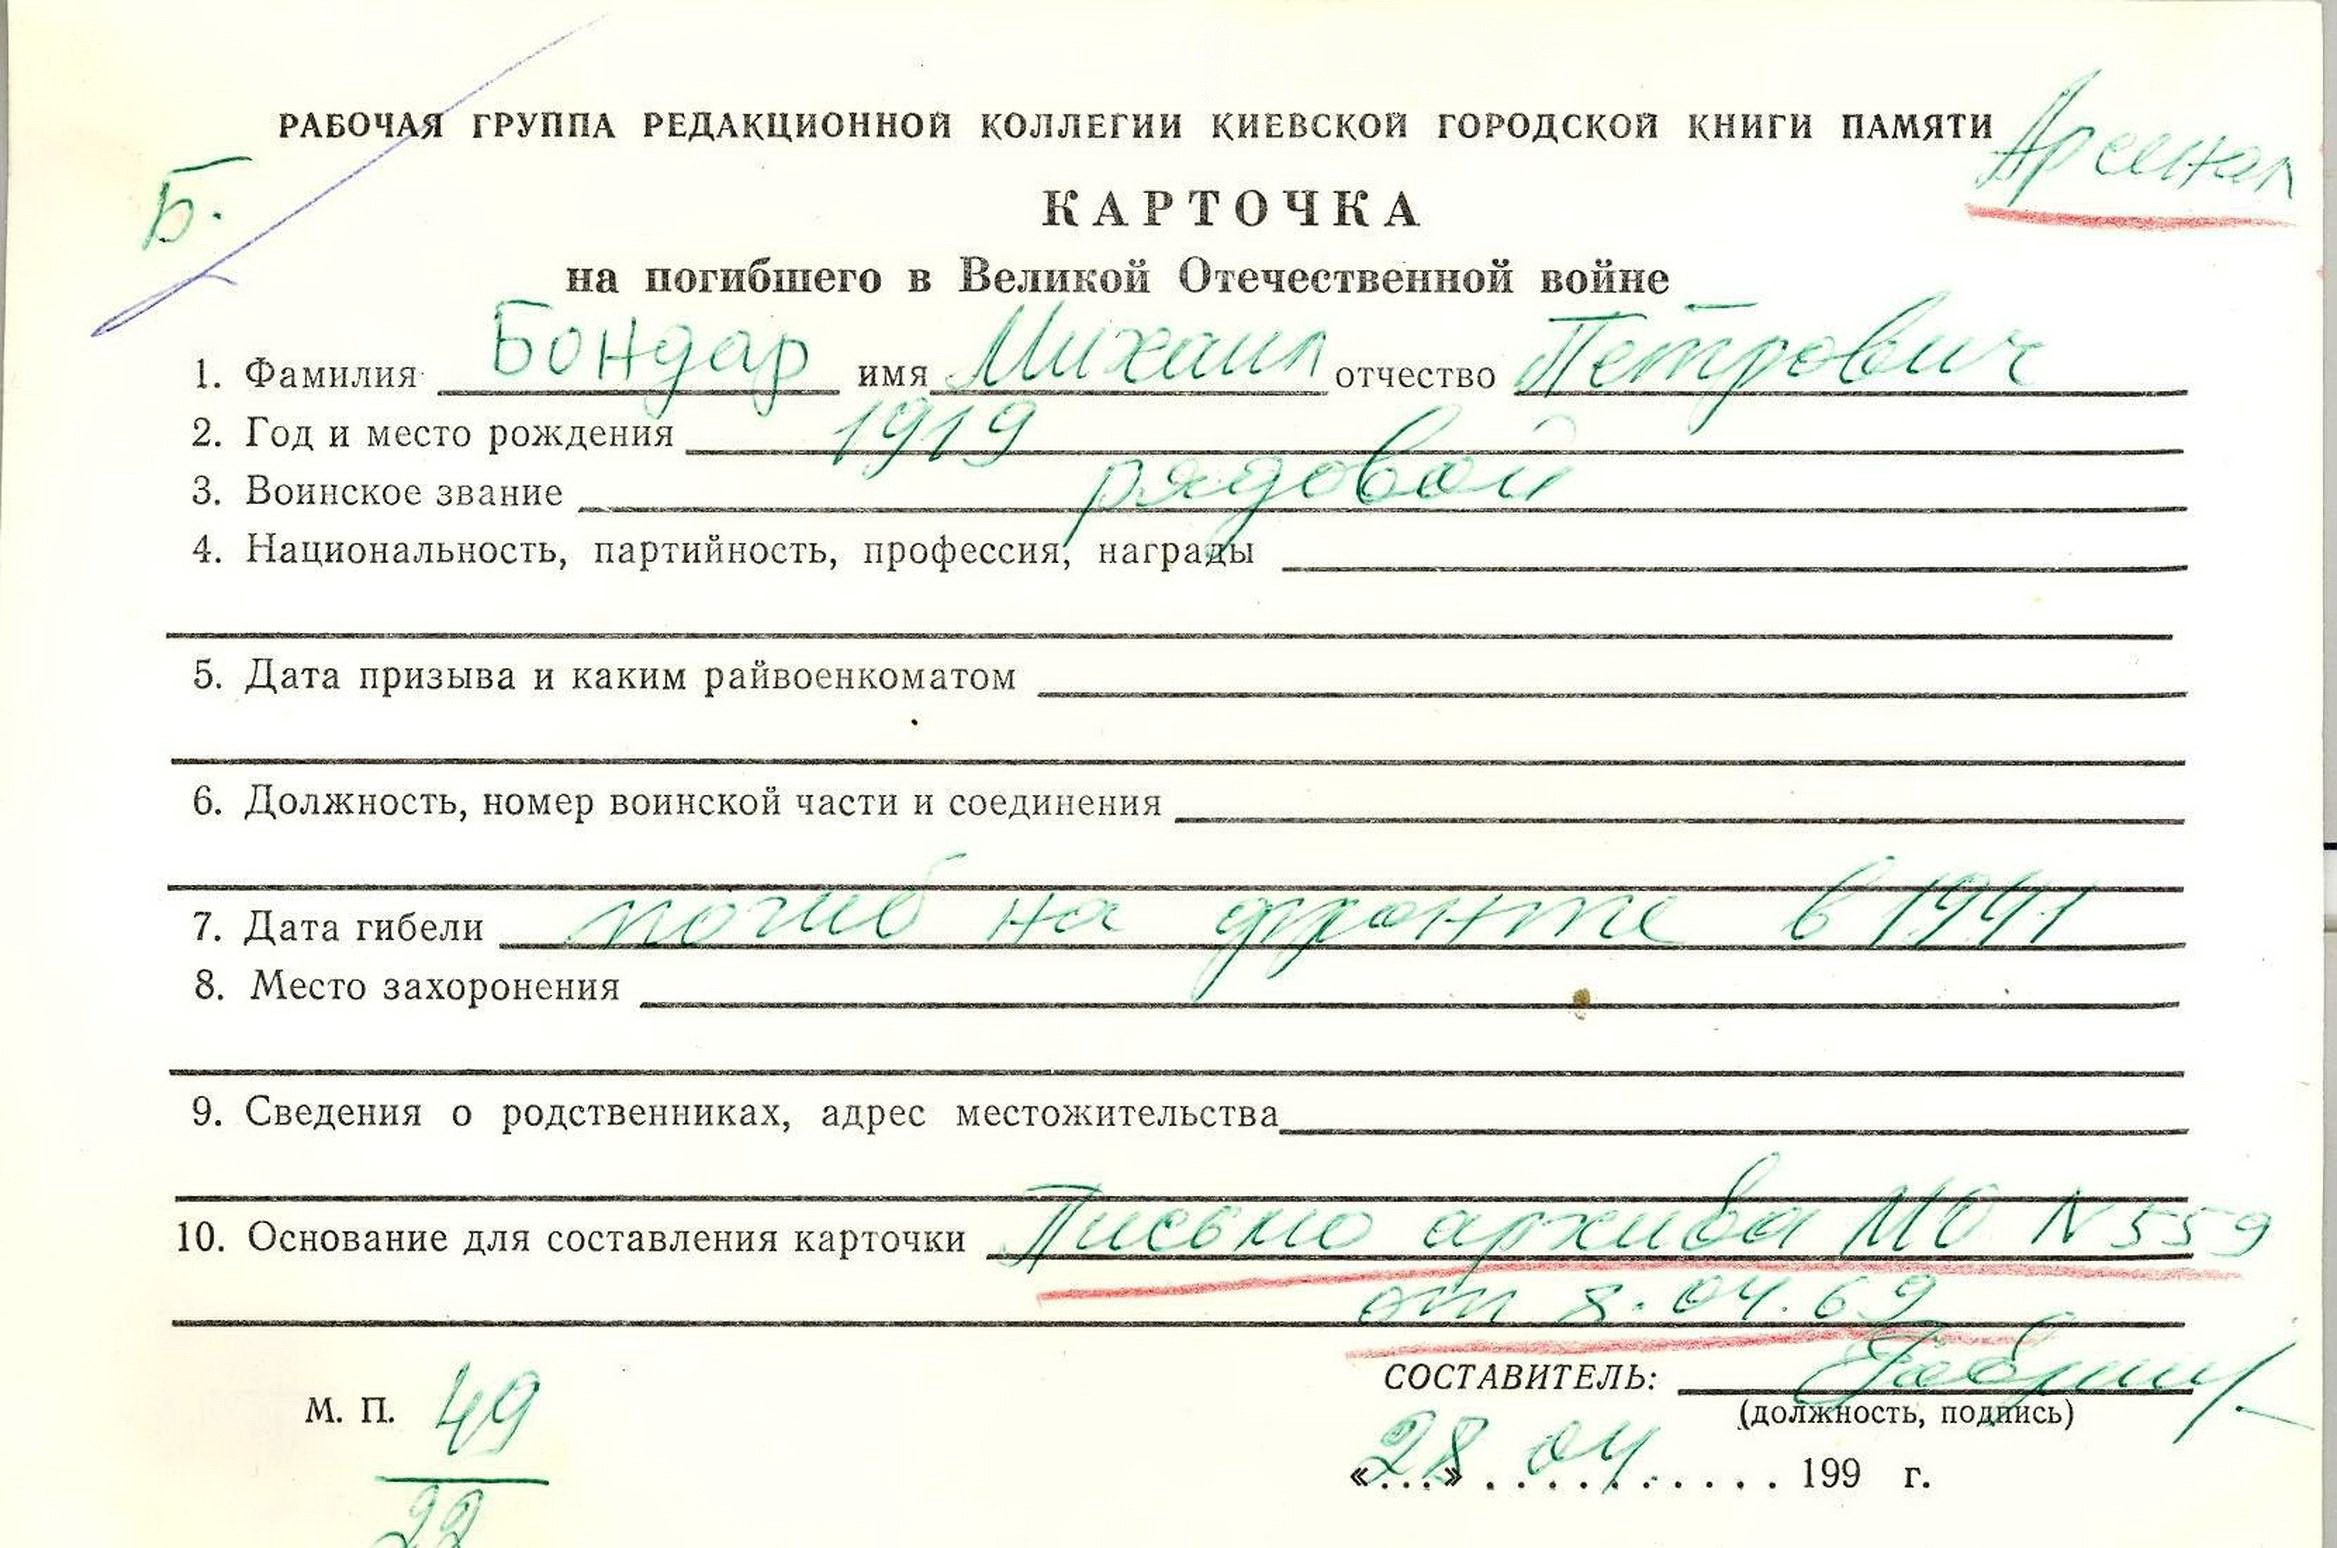 РАБОЧАЯ ГРУППА РЕДАКЦИОННОЙ КОЛЛЕГИИ КИЕВСКОЙ ГОРОДСКОЙ КНИГИ ПАМЯТИ
Арсенал
Б.
КАРТОЧКА
на погибшего в Великой Отечественной войне
1. Фамилия Бондар имя Михаил отчество Петрович
2. Год и место рождения 1919
3. Воинское звание рядовой
4. Национальность, партийность, профессия, награды
5. Дата призыва и каким райвоенкоматом
6. Должность, номер воинской части и соединения
7. Дата гибели погиб на фронте в 1941
8. Место захоронения
9. Сведения о родственниках, адрес местожительства
10. Основание для составления карточки Письмо архива МО N 559
от 8.04.69
СОСТАВИТЕЛЬ:
(должность, подпись)
М. П. 49
22
«28» 04. 199 г.